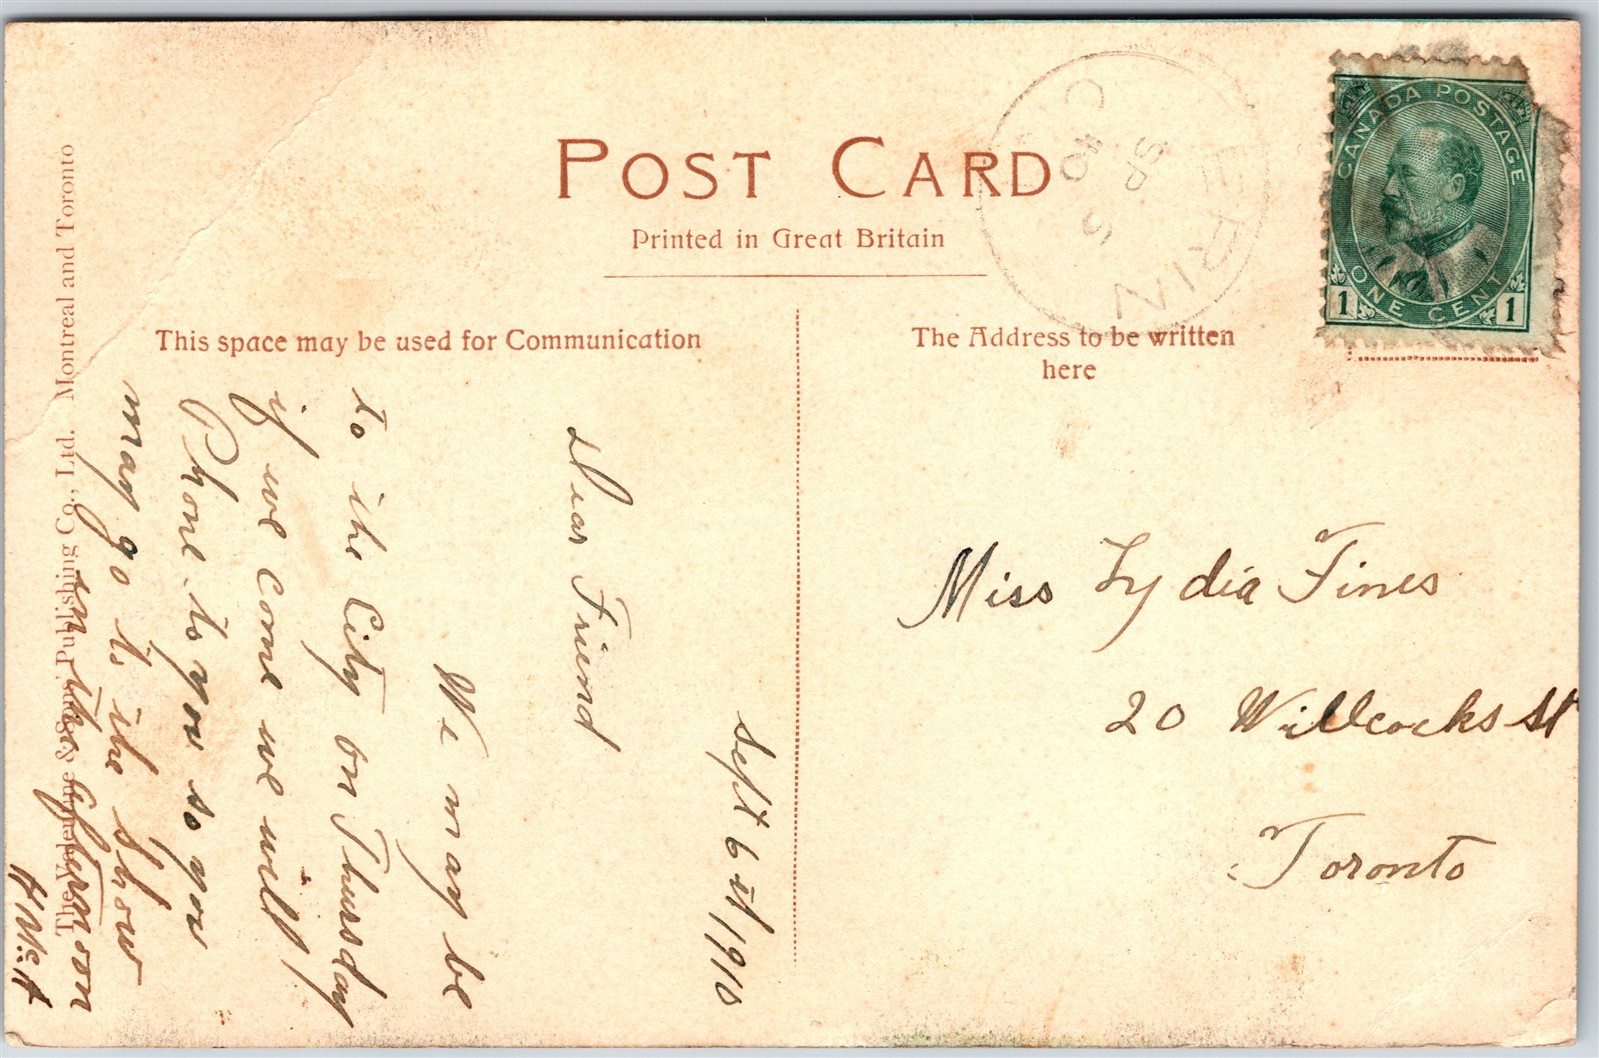 POST CARD
Printed in Great Britain
This space may be used for Communication
The Address to be written
here
CANADA POSTAGE
ONE CENT
1 1
ERIN
SP
The Valentine & Sons' Publishing Co., Ltd. Montreal and Toronto
Sept 6th 1910
Dear Friend
We may be
to the City on Thursday
if we come we will
Phone to you so you
may go to the show
in the afternoon
Miss Lydia Fines
20 Willcocks St
Toronto